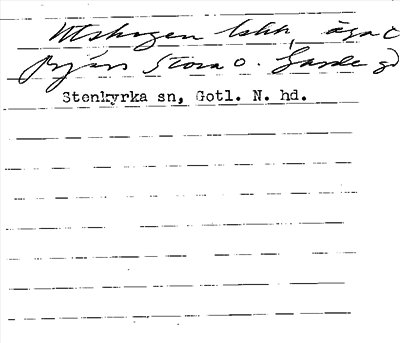 Utskogen bskh, äga i
Bjärs Stora o. Garde gd
Stenkyrka sn, Gotl. N. hd.